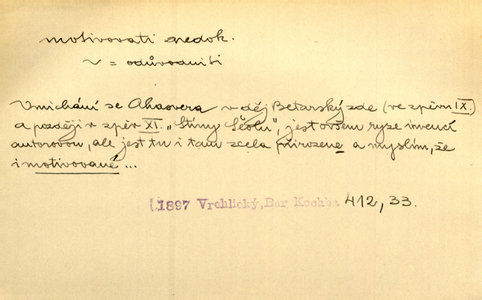 motivovati nedok.
v = odůvodniti
Vmíchání se Ahasvera v děj Betarský zde (ve zpěvu IX.)
a později v zpěv XI. „Stíny Šeolu", jest ovšem ryze invencí
autorovou, ale jest tu i tam zcela přirozené a myslím, že
i motivované ...
(1897 Vrchlický, Bar Kochba 412, 33.